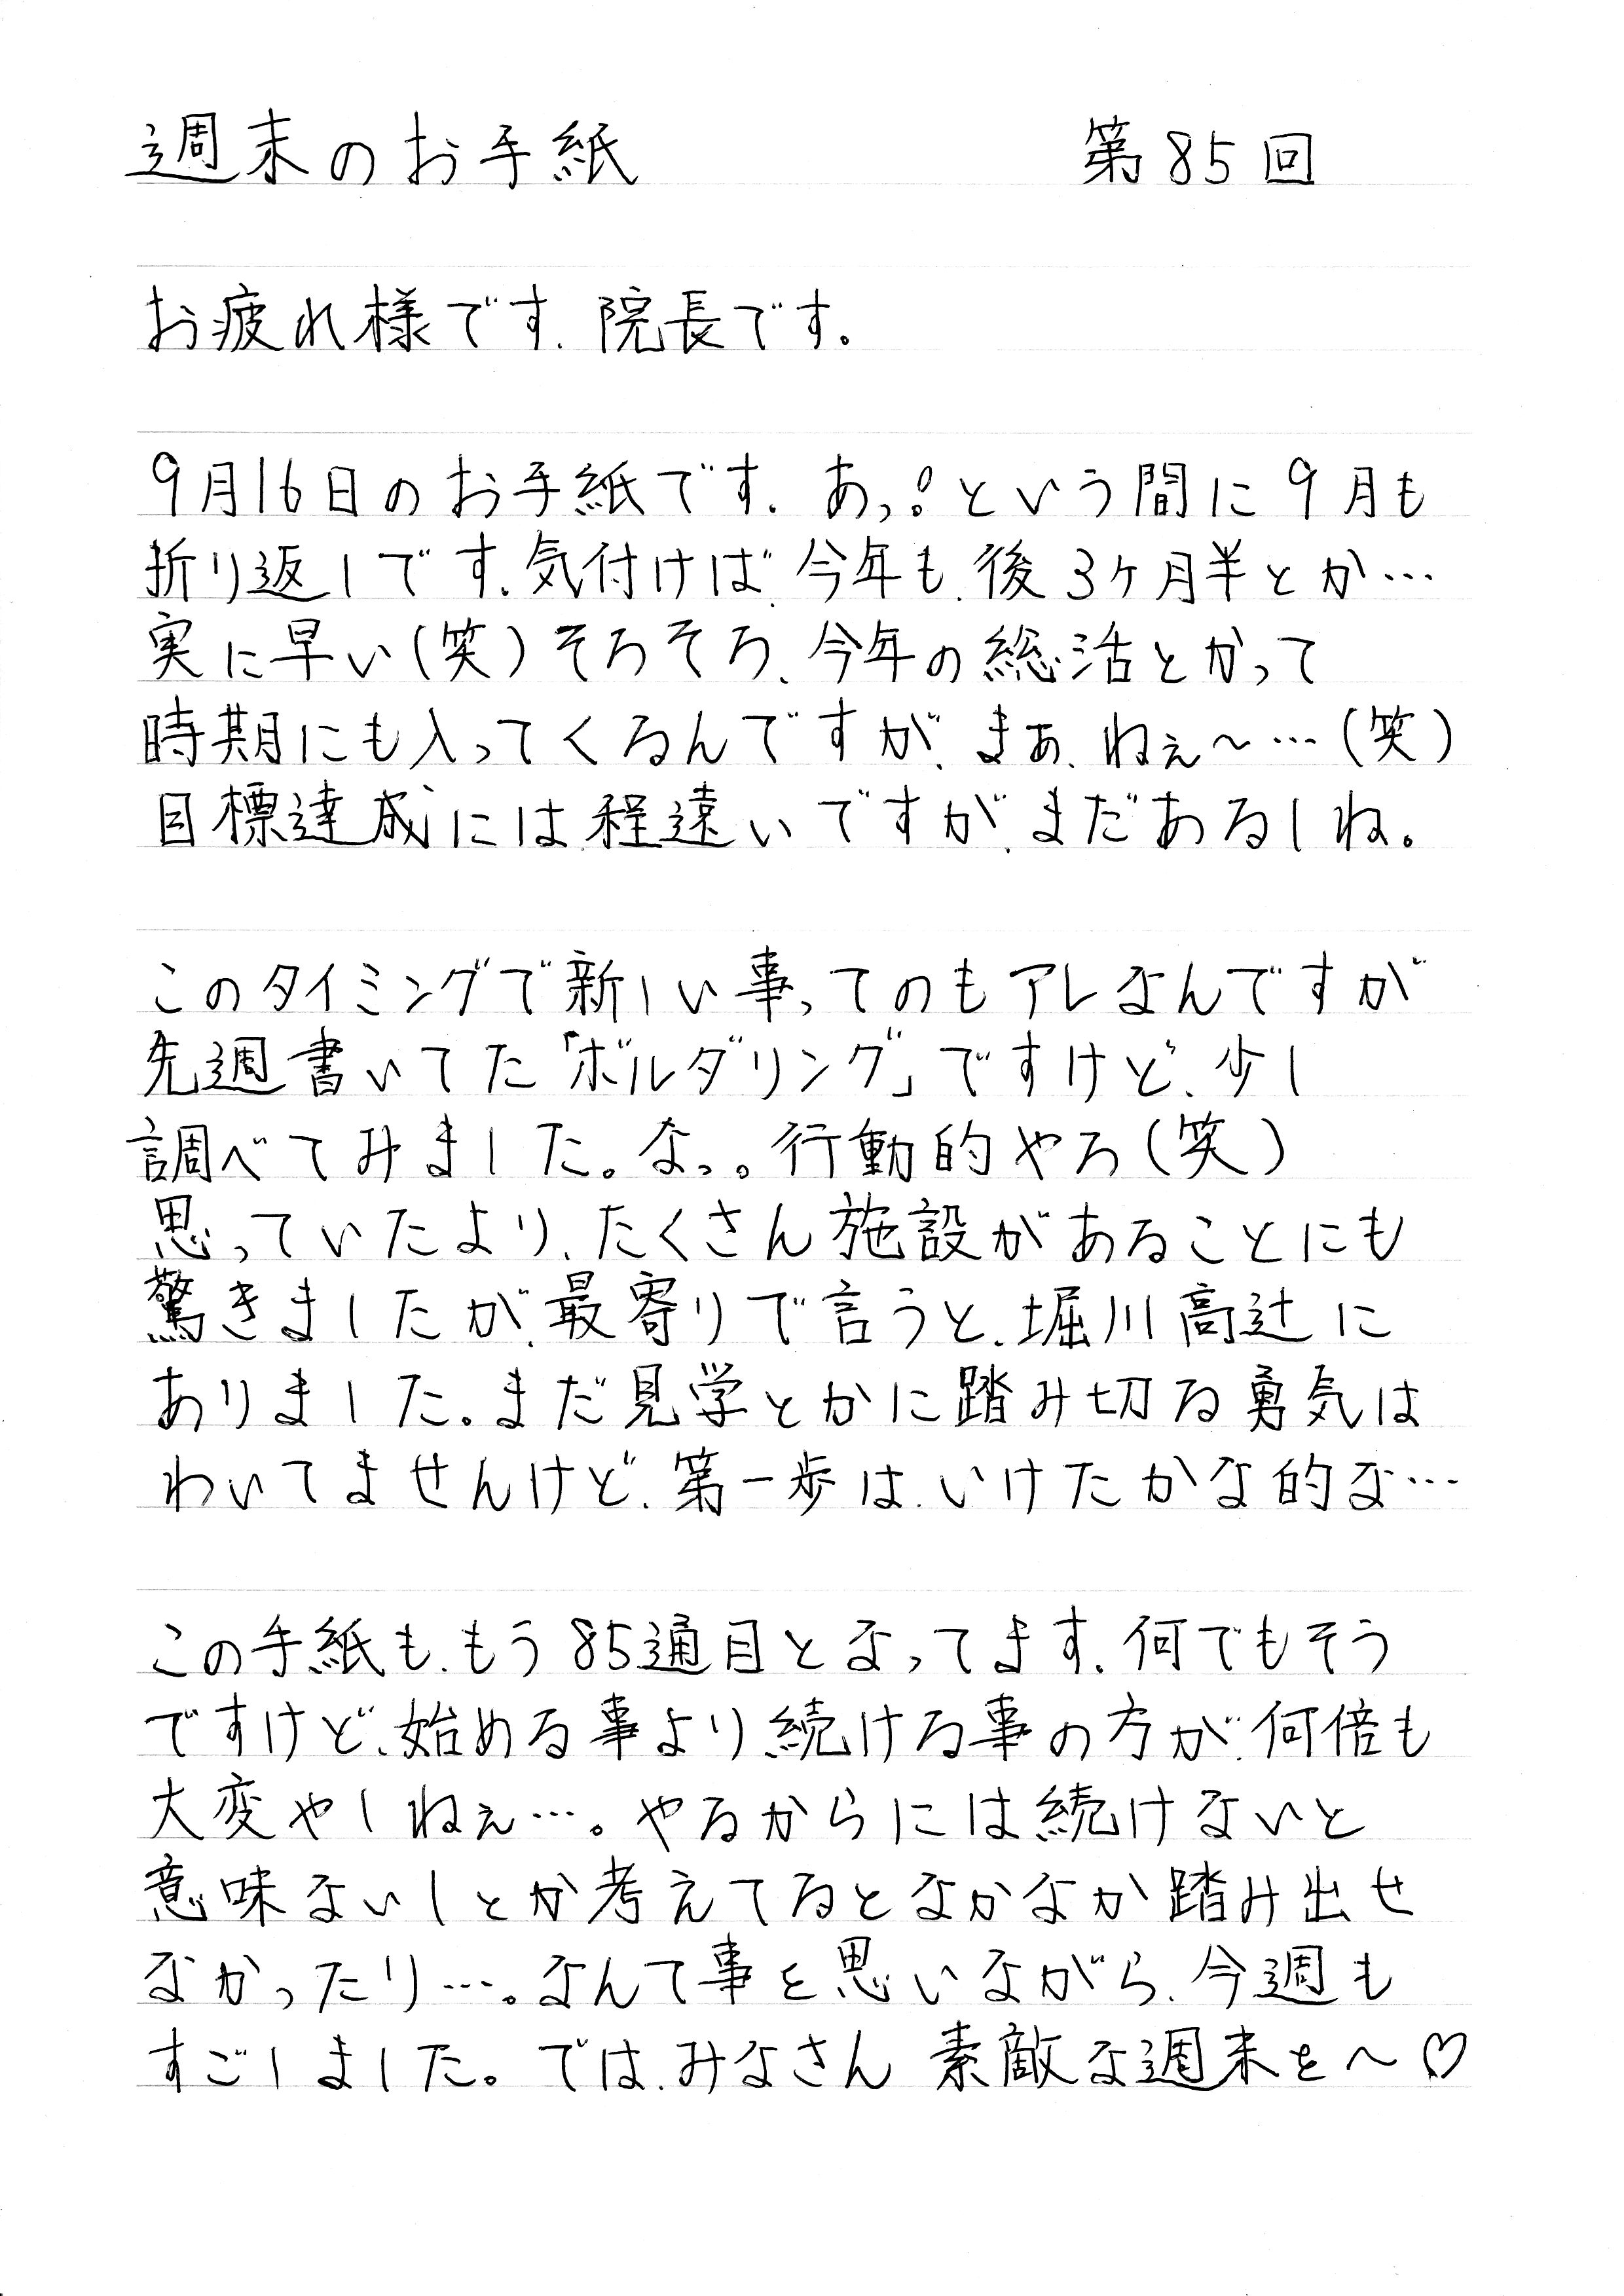 週末のお手紙 第85回
お疲れ様です、院長です。
9月16日のお手紙です。あっ!という間に9月も
折り返しです、気付けば、今年も、後3ヶ月半とか…
実に早い(笑)そろそろ、今年の総活とかって
時期にも入ってくるんですが、まぁ、ねぇ～…(笑)
目標達成には、程遠いですが、まだあるしね。
このタイミングで新しい事ってのもアレなんですが
先週書いてた「ボルダリング」ですけど、少し
調べてみました。なっ。行動的やろ(笑)
思っていたより、たくさん施設があることにも
驚きましたが、最寄りで言うと、堀川高辻に
ありました。まだ見学とかに踏み切る勇気は
わいてませんけど、第一歩は、いけたかな的な…
この手紙も、もう85通目となってます、何でもそう
ですけど、始める事より、続ける事の方が、何倍も
大変やしねぇ…。やるからには続けないと
意味ないしとか考えてるとなかなか踏み出せ
なかったり…。なんて事を思いながら、今週も
すごしました。では、みなさん 素敵な週末を～♡